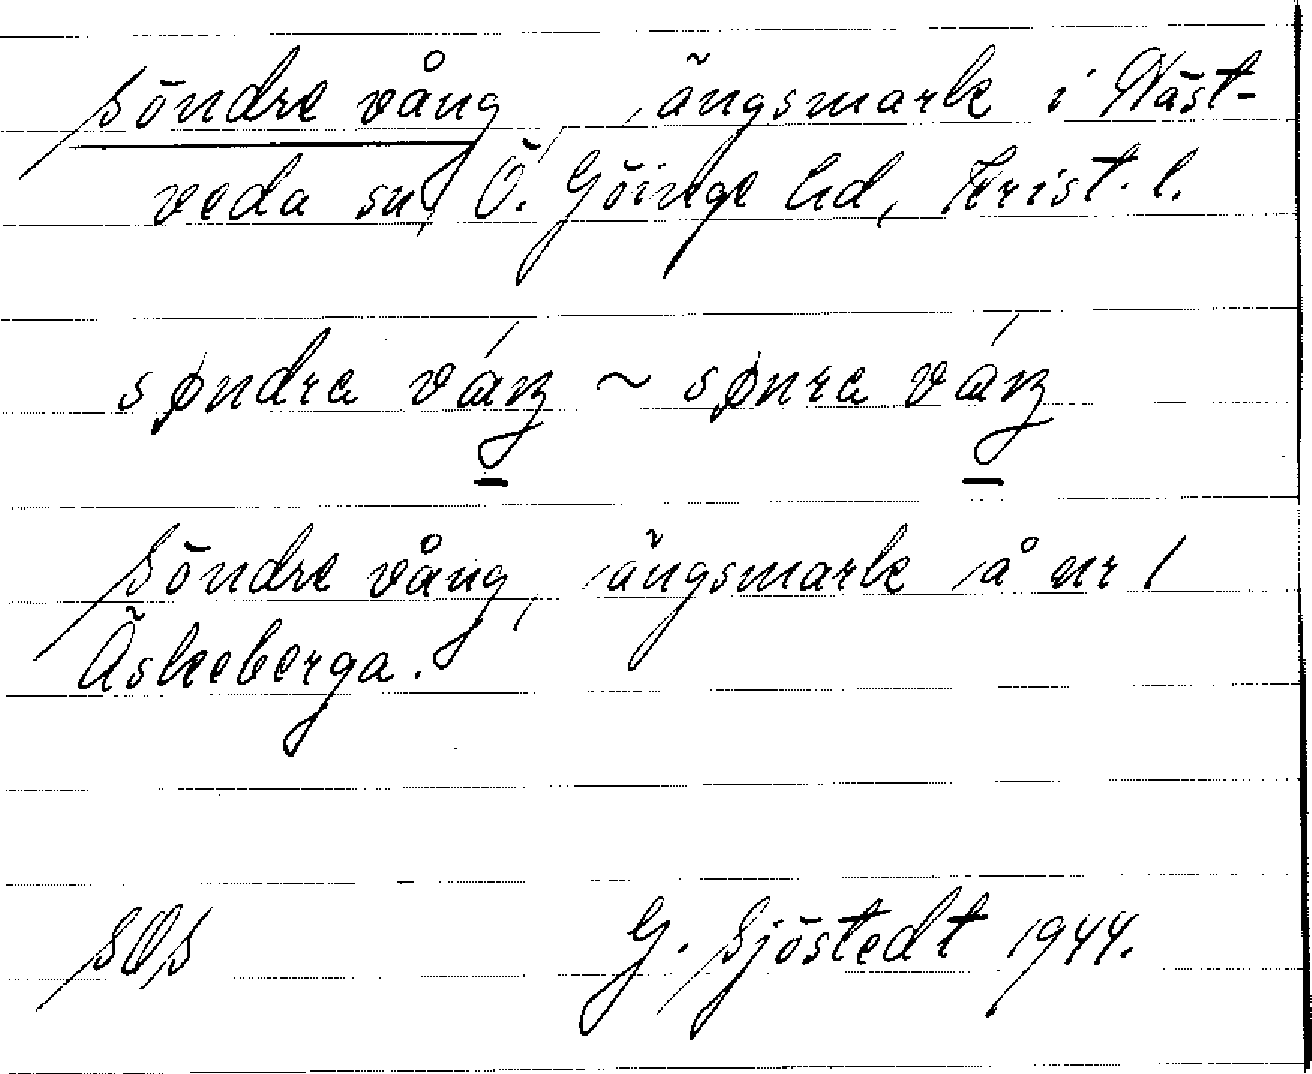 Söndre vång, ängsmark i Näst-
veda sn, Ö. Göinge hd, Krist. l.
søndra váŋ ~ sønra váŋ
Söndre vång, ängsmark å nr 1
Äskeberga.
SOS G. Sjöstedt 1944.